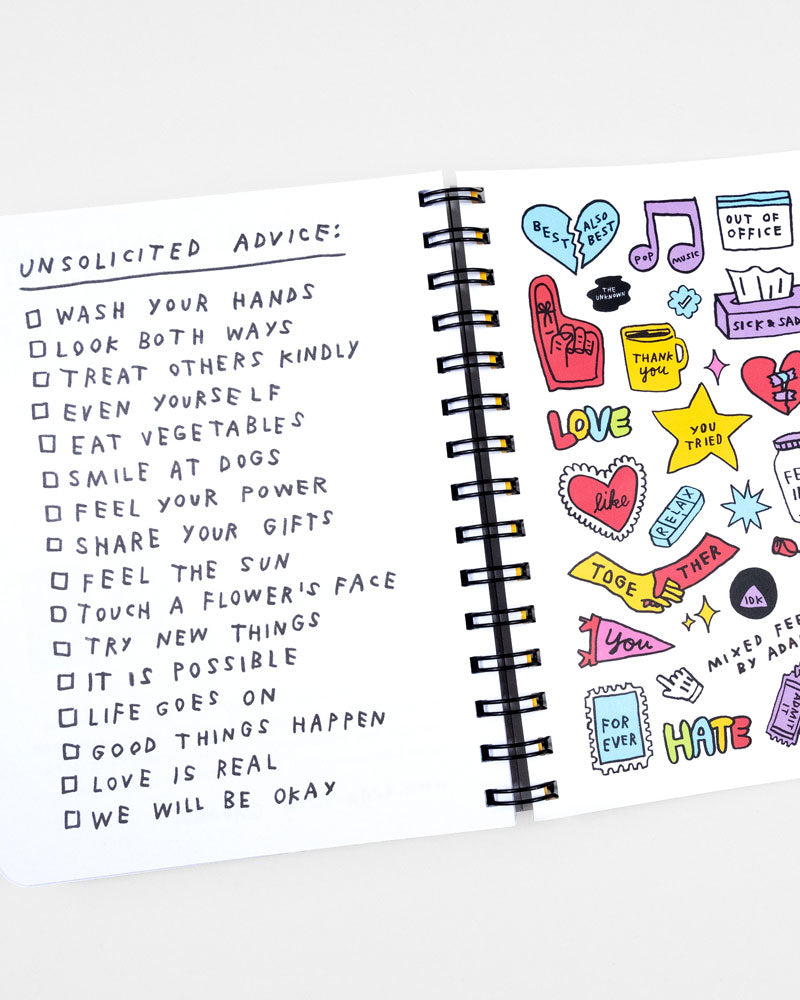 UNSOLICITED ADVICE:
WASH YOUR HANDS
LOOK BOTH WAYS
TREAT OTHERS KINDLY
EVEN YOURSELF
EAT VEGETABLES
SMILE AT DOGS
FEEL YOUR POWER
SHARE YOUR GIFTS
FEEL THE SUN
TOUCH A FLOWER'S FACE
TRY NEW THINGS
IT IS POSSIBLE
LIFE GOES ON
GOOD THINGS HAPPEN
LOVE IS REAL
WE WILL BE OKAY
BEST
ALSO
BEST
POP MUSIC
OUT OF
OFFICE
THE
UNKNOWN
SICK & SAD
THANK
you
LOVE
YOU
TRIED
like
RELAX
TOGE THER
IDK
You
MIXED
BY
FOR
EVER
HATE
ADMIT
IT